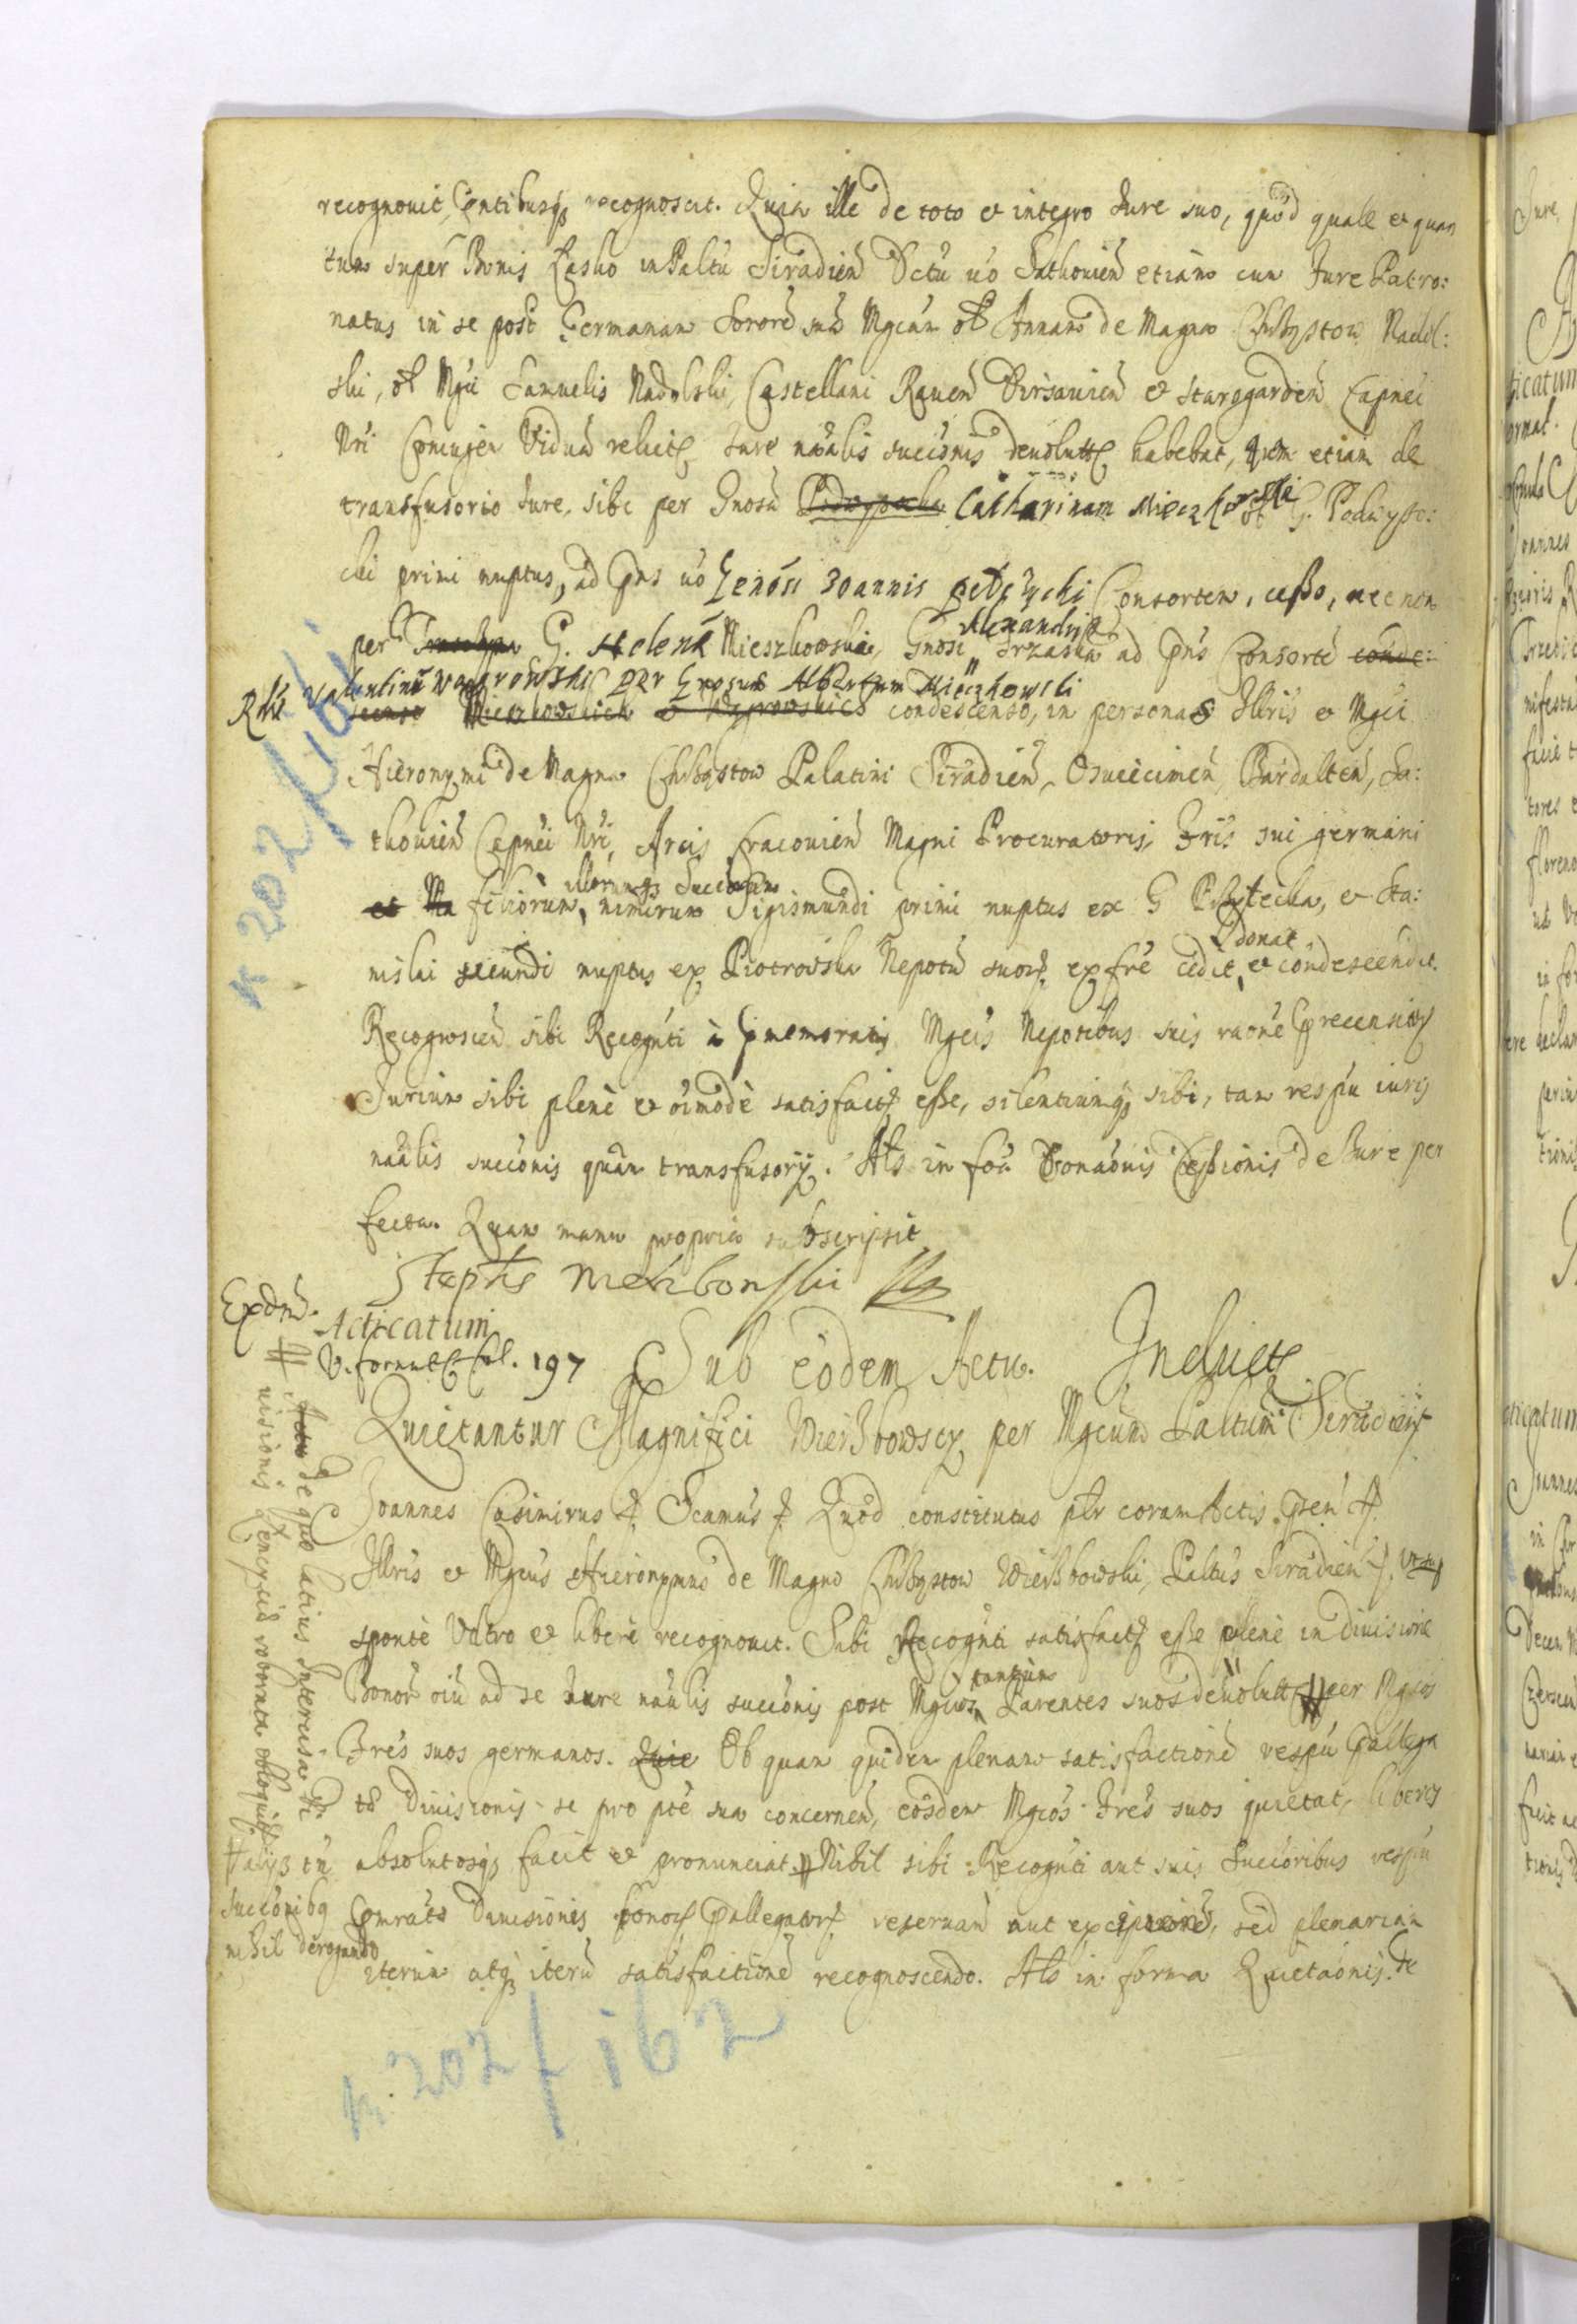 recognovit, Pntibusq; recognoscit. Quia ille de toto et integro Jure suo, quod quale et quan
tum super Bonis Łasko in Paltu Siradien Dctu uo Szathovien etiam cum Jure Patro:
natus in se post Germanam Sororem suam Mgcam ol Annam de Magna Chrbzstow Nadol:
ski, ol Mgci Samuelis Nadolski, Castellani Raven Virsavien et Staregarden Capnei
Nri Coniugem Viduam relict, Jure nralis succionis devolut habebat, quam etiam de
transfusorio Jure, sibi per Gnosam Catharinam Mieczkowski ol G. Podwyso:
cki primi nuptus, ad Pns uo Genosi Joannis Consortem, cesso, nec non
per G. Helena Mieszkowska, Gnosi Alexandri Trzaska ad Pns Consortem
Rdu Valentinu Wągrowski per Gnosum Albertum Mieczkowski
condescenso, in personas Illris et Mgci
Hieronymi de Magna Chrbzstow Palatini Siradien, Osviecimen, Bardalten, Sza:
thovien Capnei Nri, Arcis Cracovien Magni Procuratoris, Fris sui germani
et filiorum, illorumq; Succorum nimirum Sigismundi primi nuptus ex G Przytecka, et Sta:
nislai secundi nuptus ex Piotrowska Nepotum suor, ex fre cedit, donat et condescendit.
Recognoscen sibi Recognti a Pmemoratis Mgcis Nepotibus suis raone Precensitor
Jurium sibi plene et oimode satisfact esse, silentiumq; sibi, tam respu iuris
nralis succionis quam transfusorij. Als in foa Donaonis Cessionis de Jure per
fecta. Quam manu propria subscripsit
Stephs Wierzbowski
Expdm.
Acticatum
V. format fol. 197 Sub eodem Actu. Induct
Quietantur Magnifici Wierzbowscy per Mgcum Paltum Siradien
Joannes Casimirus Scamus Quod constitutus plr coram Actis Psen
Illris et Mgcus Hieronymus de Magna Chrbzstow Wierzbowski, Paltus Siradien
sponte Ultro et libere recognovit. Sibi Recognti satisfact esse plene in divisione
Bonor oiu ad se Jure nralis succionis post Mgcos tantum Parentes suos devolut per Mgcos
Fres suos germanos. Ob quam quidem plenam satisfactionem respu Pallega
tae Divisionis se pro pte sua concernen, eosdem Mgcos Fres suos quietat, liberos
absolutosq; facit et pronunciat. Nihil sibi Recognti aut suis Succoribus respu
Pmratae Divisionis bonor Pallegator reservan aut excipien, sed plenariam
iterum atq; iteru satisfactionem recognoscendo. Als in forma Quietaonis de
Actu de quo latius Intercisa di
visionis roborata obloquitur
aliis tn
succionibq
nihil derogando
k 202/161
k. 202/162